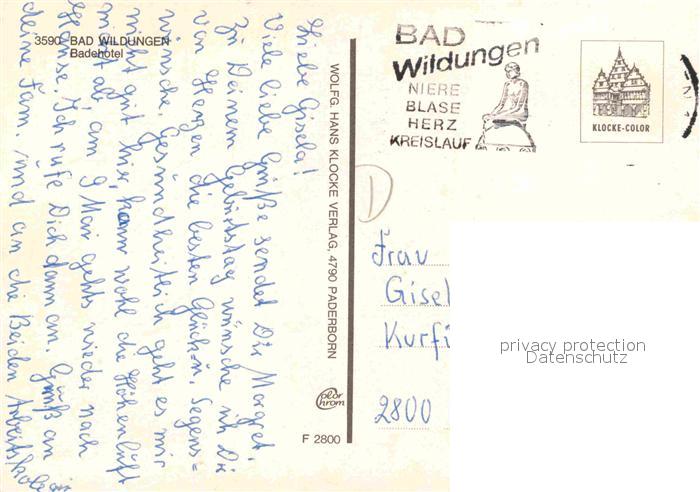 3590 BAD WILDUNGEN
Badehotel
Liebe Gisela!
Viele liebe Grüße sendet Dir Margret.
Zu Deinem Geburtstag wünsche ich Dir
von Herzen die besten Glück= u. Segens=
wünsche. Gesundheitlich geht es mir
nicht gut hier, kann wohl die Höhenluft
nicht ab, am 9 Mai gehts wieder nach
Hause. Ich rufe Dich dann an. Gruß an
deine Fam. und an die Beiden
WOLFG. HANS KLOCKE VERLAG, 4790 PADERBORN
color
chrom
F 2800
BAD
Wildungen
NIERE
BLASE
HERZ
KREISLAUF
KLOCKE-COLOR
D
Frau
Gisel
Kurfü
2800
privacy protection
Datenschutz